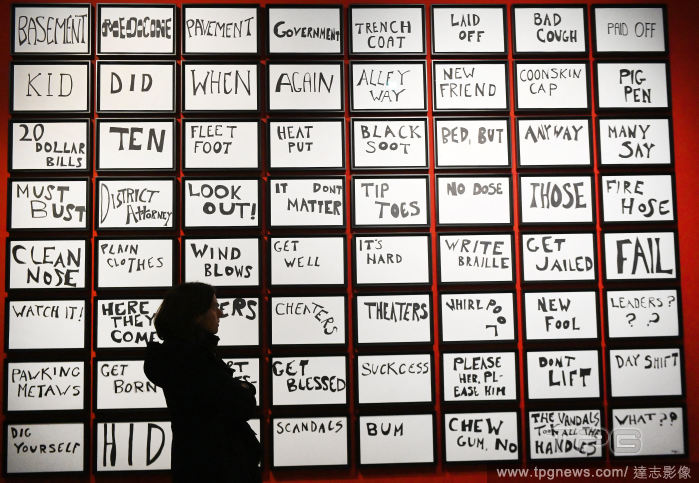 BASEMENT
MEDICINE
PAVEMENT
GOVERNMENT
TRENCH
COAT
LAID
OFF
BAD
COUGH
PAID OFF
KID
DID
WHEN
AGAIN
ALLEY
WAY
NEW
FRIEND
COONSKIN
CAP
PIG
PEN
20
DOLLAR
BILLS
TEN
FLEET
FOOT
HEAT
PUT
BLACK
SOOT
BED, BUT
ANYWAY
MANY
SAY
MUST
BUST
DISTRICT
ATTORNEY
LOOK
OUT!
IT DONT
MATTER
TIP
TOES
NO DOSE
THOSE
FIRE
HOSE
CLEAN
NOSE
PLAIN
CLOTHES
WIND
BLOWS
GET
WELL
IT'S
HARD
WRITE
BRAILLE
GET
JAILED
FAIL
WATCH IT!
HERE
THEY
COME
ERS
CHEATERS
THEATERS
WHIRLPOOL
NEW
FOOL
LEADERS?
? ?
PAWKING
METAWS
GET
BORN
RT
GET
BLESSED
SUCKCESS
PLEASE
HER, PL-
EASE HIM
DONT
LIFT
DAY SHIFT
DIG
YOURSELF
HID
SCANDALS
BUM
CHEW
GUM, NO
THE VANDALS
TOOK ALL THE
HANDLES
WHAT??
TPG
www.tpgnews.com/ 達志影像